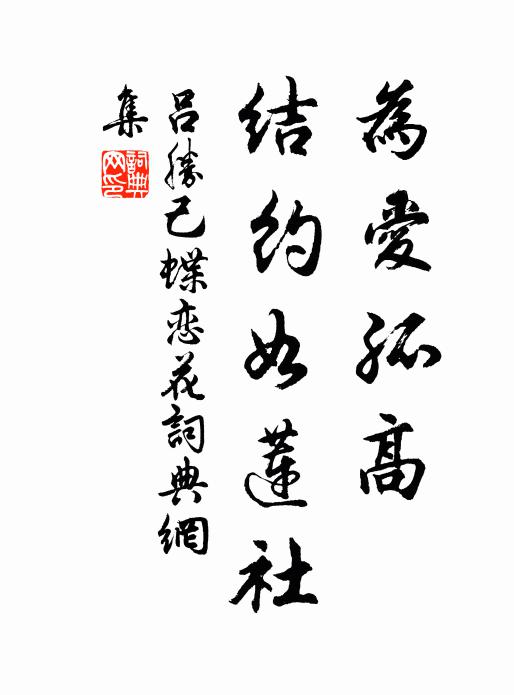 為愛孤高
結約如蓮社
吕勝己蝶恋花詞典網
集
詞典
网印